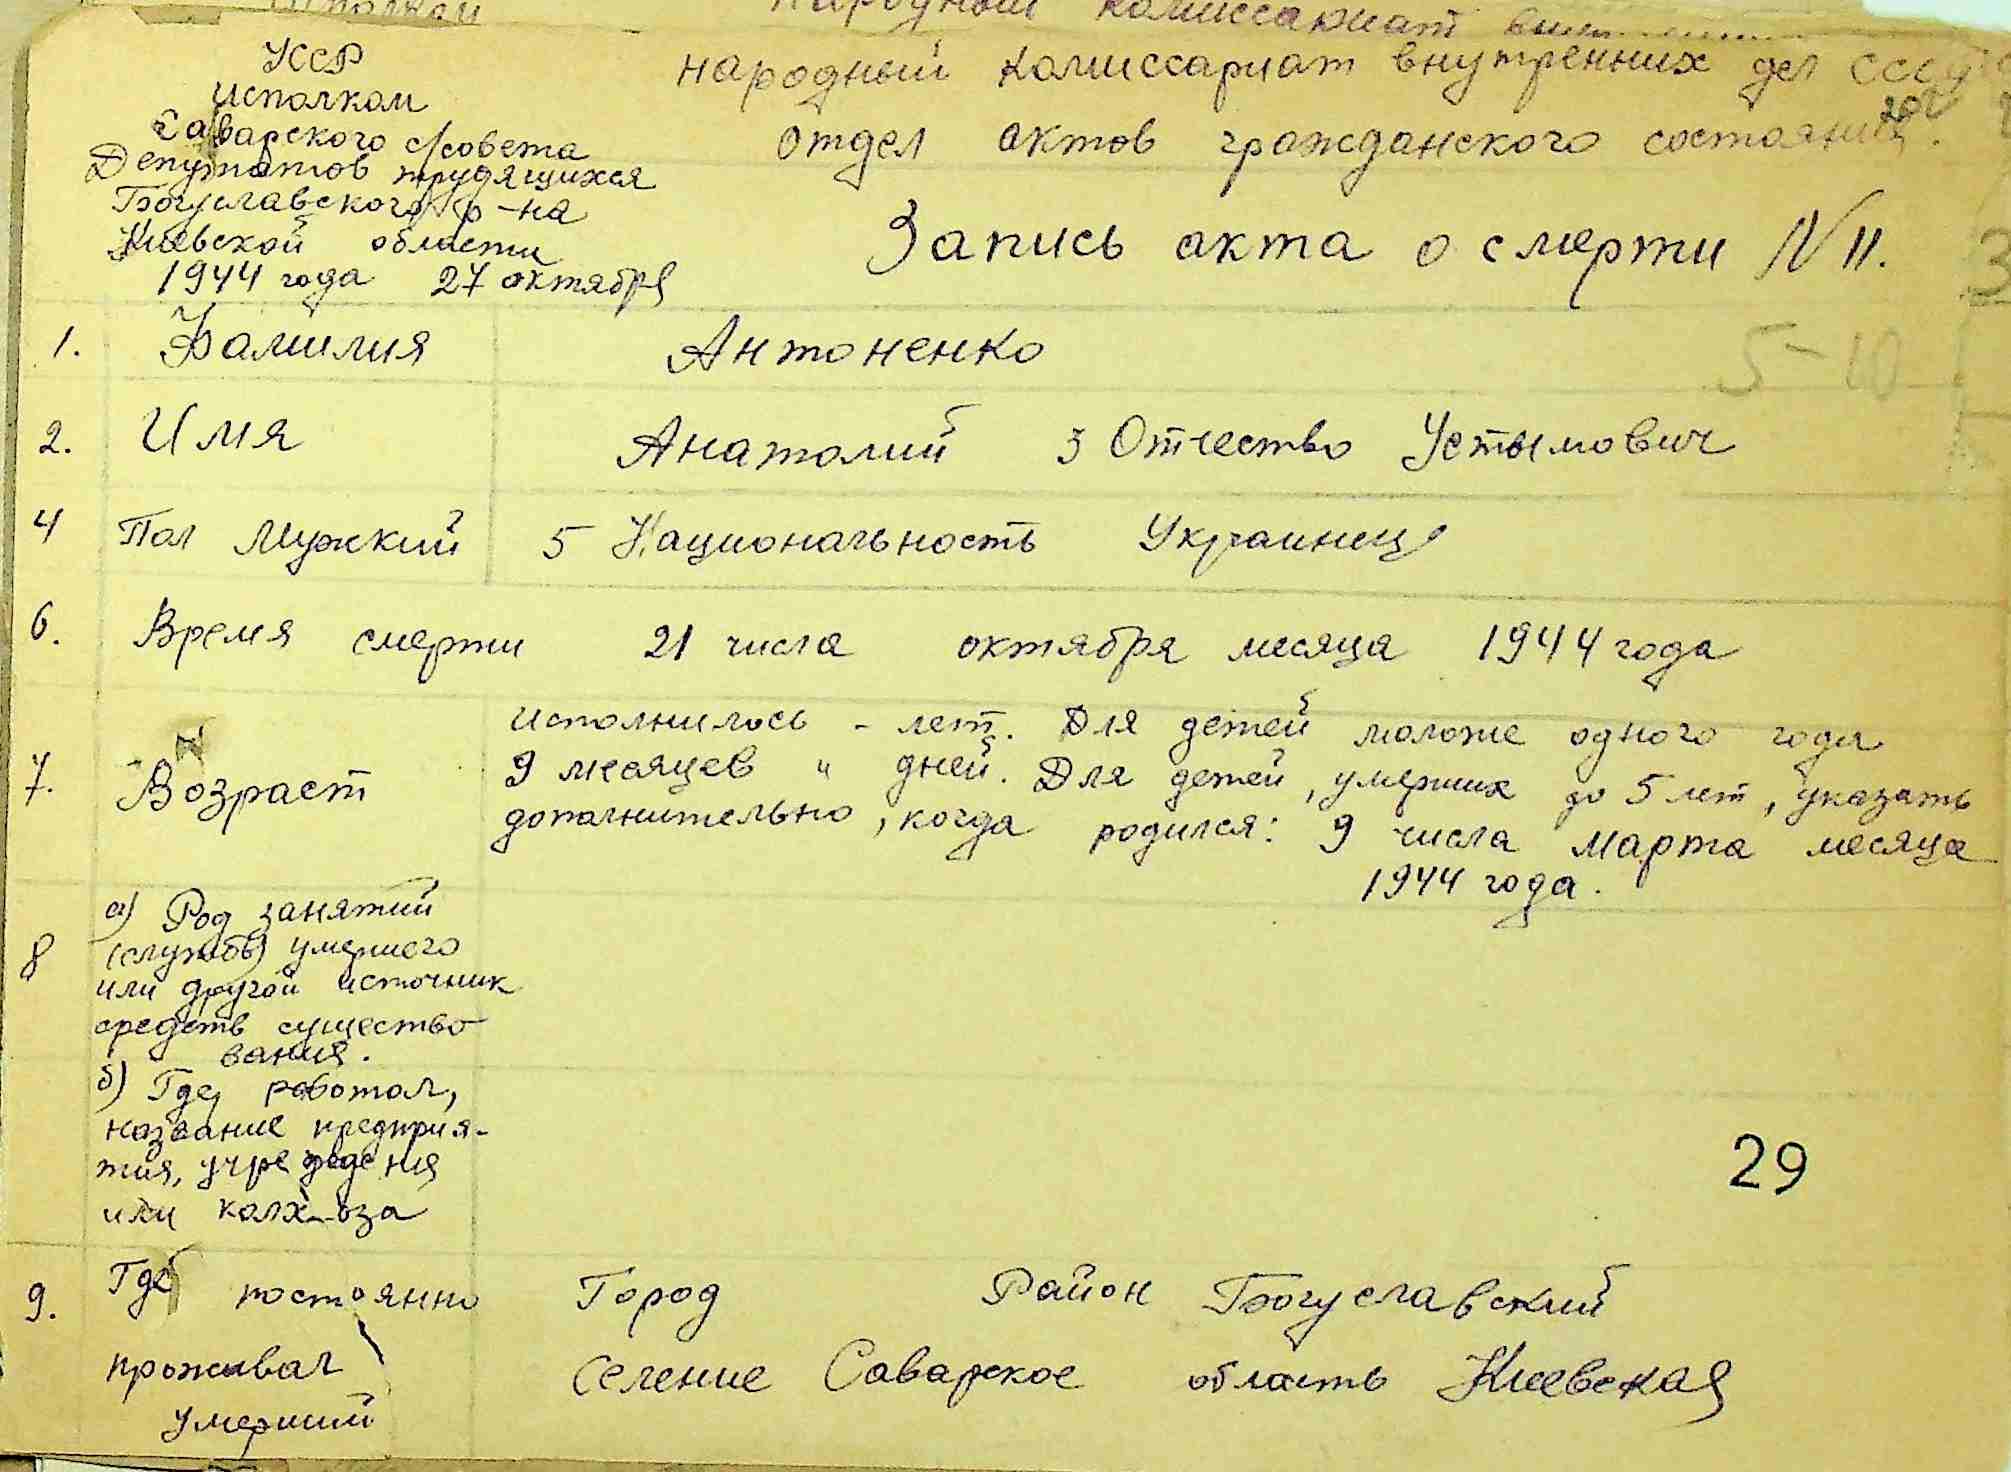 народный комиссариат
УССР
исполком
Саварского с/совета
Депутатов трудящихся
Богуславского р-на
Киевской области
1944 года 27 октября
народный комиссариат внутренних дел СССР
отдел актов гражданского состояния.
Запись акта о смерти N 11.
5-10
1. Фамилия Антоненко
2. Имя Анатолий 3 Отчество Устымович
4 Пол Мужский 5 Национальность Украинец
6. Время смерти 21 числа октября месяца 1944 года
7. Возраст
исполнилось - лет. Для детей моложе одного года
9 месяцев " дней. Для детей, умерших до 5 лет, указать
дополнительно, когда родился: 9 числа марта месяца
1944 года.
8
а) Род занятий
(службы) умершего
или другой источник
средств существо
вания.
б) Где работал,
название предприя-
тия, учреждения
или колхоза
29
9. Где постоянно
проживал
умерший
Город Район Богуславский
Селение Саварское область Киевская